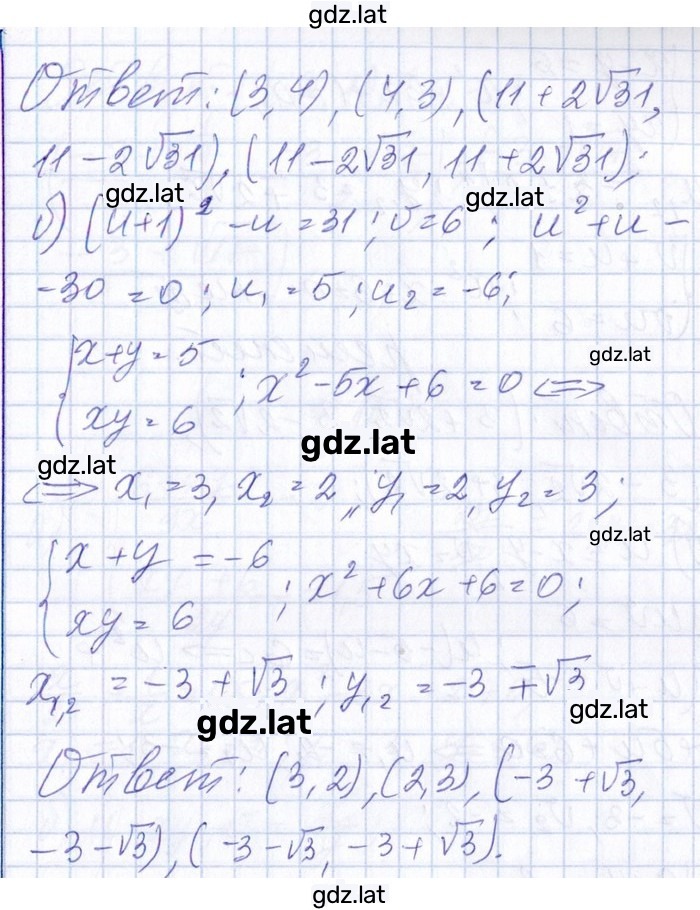 gdz.lat
Ответ: (3,4), (4,3), (11 + 2√31,
11 - 2√31), (11 - 2√31, 11 + 2√31);
gdz.lat gdz.lat
б) (u+1)² - u = 31; v = 6; u² + u -
-30 = 0; u₁ = 5; u₂ = -6;
{x+y = 5
gdz.lat
; x² - 5x + 6 = 0 ⟺
xy = 6
gdz.lat
gdz.lat
⟺ x₁ = 3, x₂ = 2,, y₁ = 2, y₂ = 3;
gdz.lat
{x + y = -6
; x² + 6x + 6 = 0;
xy = 6
x₁,₂ = -3 + √3; y₁,₂ = -3 ∓ √3
gdz.lat gdz.lat
Ответ: (3,2), (2,3), (-3 + √3,
-3 - √3), (-3 - √3, -3 + √3).
gdz.lat